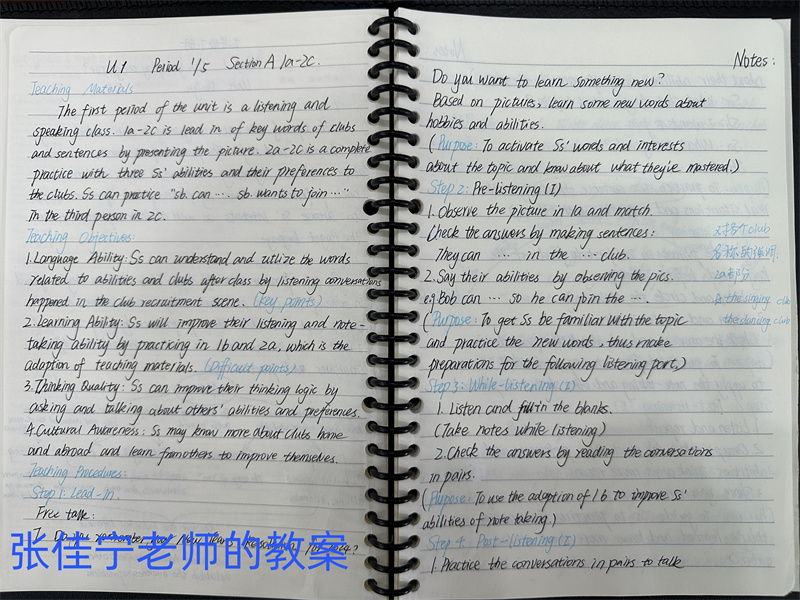 U1 Period 1/5 Section A 1a-2c.
Teaching Materials
The first period of the unit is a listening and
speaking class. 1a-2c is lead in of key words of clubs
and sentences by presenting the picture. 2a-2c is a complete
practice with three Ss' abilities and their preferences to
the clubs. Ss can practice "sb. can ... sb. wants to join ..."
in the third person in 2c.
Teaching Objectives:
1. Language Ability: Ss can understand and utlize the words
related to abilities and clubs after class by listening conversations
happened in the club recruitment scene. (key points)
2. Learning Ability: Ss will improve their listening and note-
taking ability by practicing in 1b and 2a, which is the
adaption of teaching materials. (Difficult points)
3. Thinking Quality: Ss can improve their thinking logic by
asking and talking about others' abilities and preferences.
4. Cultural Awareness: Ss may know more about clubs home
and abroad and learn from others to improve themselves.
Teaching Procedures:
Step 1: Lead-in
Free talk:
张佳宁老师的教案
Notes:
Do you want to learn something new?
Based on pictures, learn some new words about
hobbies and abilities.
(Purpose: To activate Ss' words and interests
about the topic and know about what they've mastered.)
Step 2: Pre-listening (I)
1. Observe the picture in 1a and match.
Check the answers by making sentences:
They can ... in the ... club.
2. Say their abilities by observing the pics.
e.g. Bob can ... so he can join the ....
(Purpose: To get Ss be familiar with the topic
and practice the new words, thus make
preparations for the following listening part.)
Step 3: While-listening (I)
1. Listen and fill in the blanks.
(Take notes while listening)
2. Check the answers by reading the conversations
in pairs.
(Purpose: To use the adaption of 1b to improve Ss'
abilities of note taking.)
Step 4: Post-listening (I)
1. Practice the conversations in pairs to talk
club
2a部分
the singing club
the dancing club